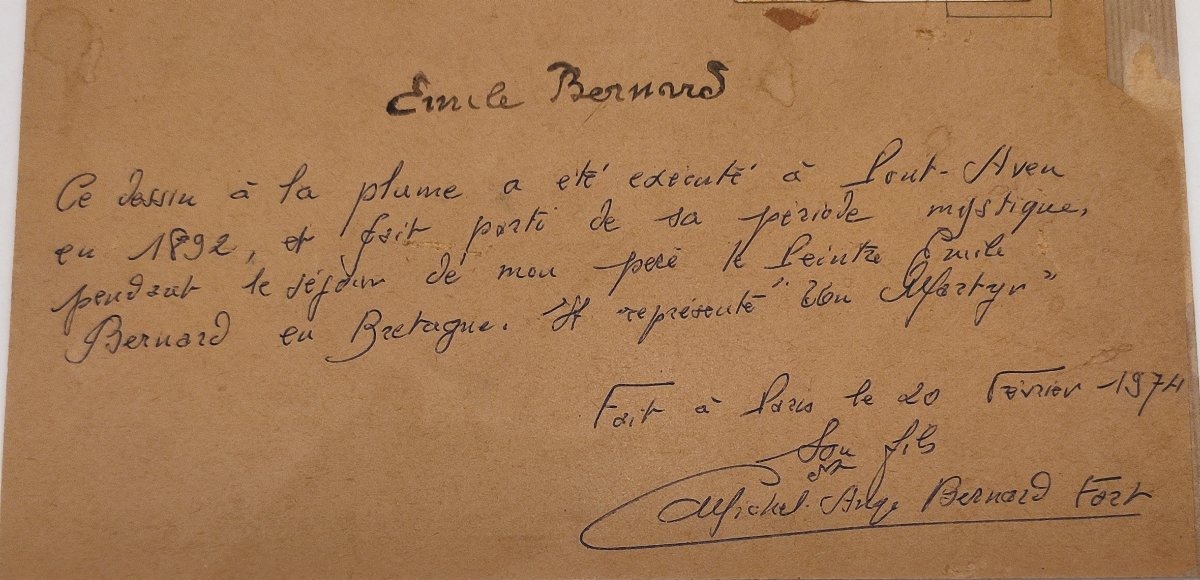 Emile Bernard
Ce dessin à la plume a été exécuté à Pont-Aven
en 1892, et fait parti de sa période mystique,
pendant le séjour de mon père le Peintre Emile
Bernard en Bretagne. Il représente "Un Martyr"
Fait à Paris le 20 Février 1974
Son fils
Michel-Ange Bernard Fort